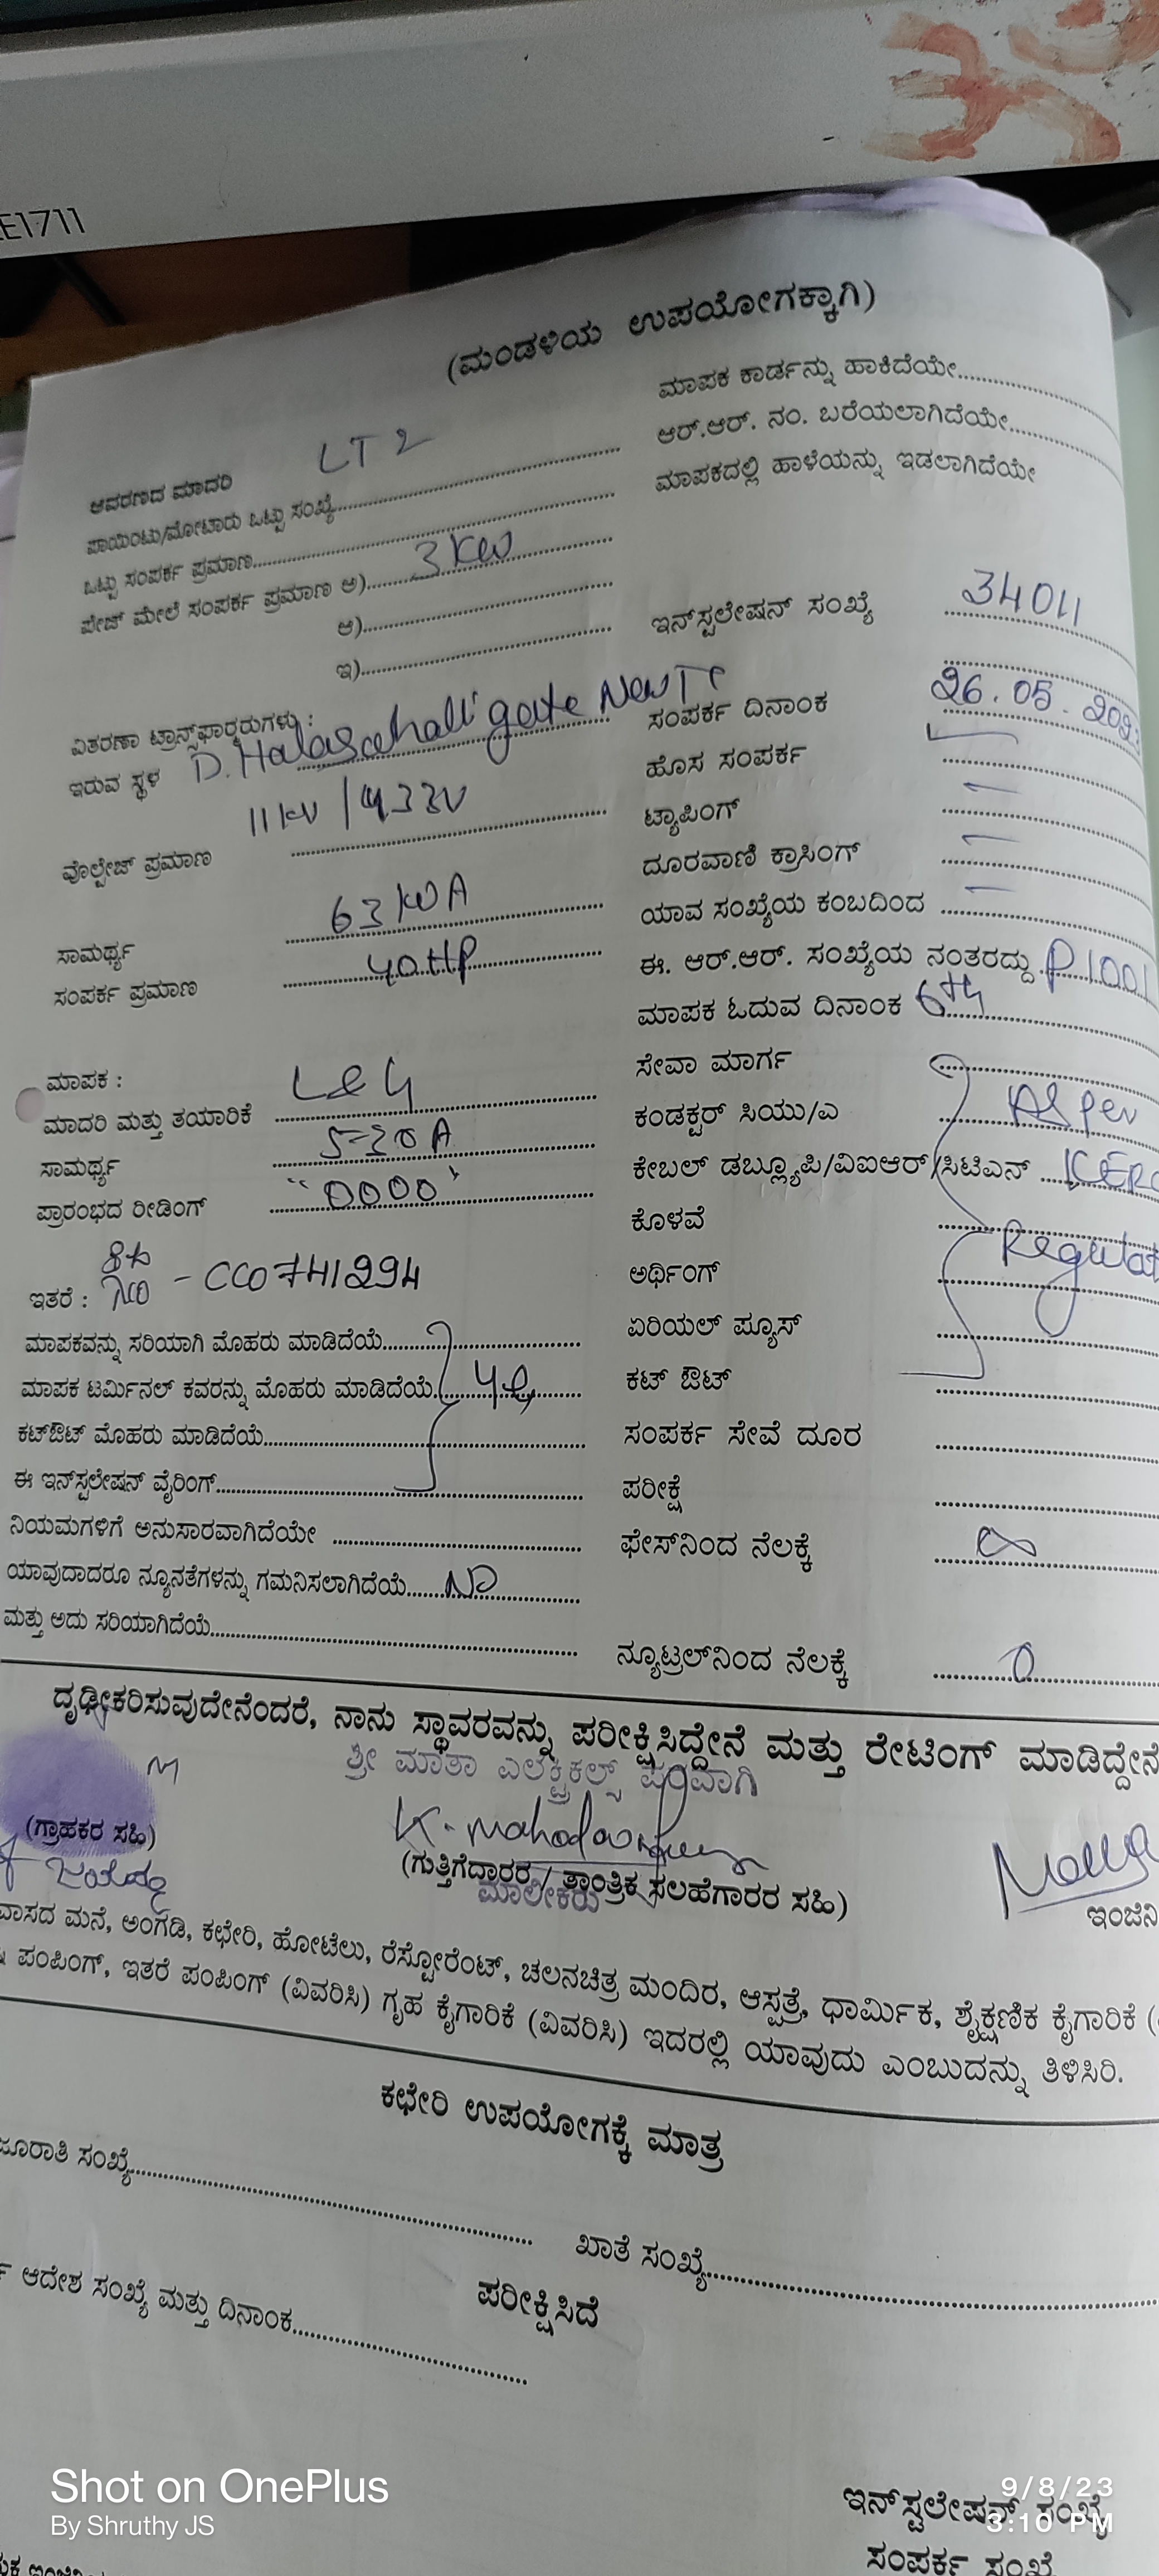 E1711
(ಮಂಡಳಿಯ ಉಪಯೋಗಕ್ಕಾಗಿ)
ಮಾಪಕ ಕಾರ್ಡನ್ನು ಹಾಕಿದೆಯೇ
ಆರ್.ಆರ್. ನಂ. ಬರೆಯಲಾಗಿದೆಯೇ
ಮಾಪಕದಲ್ಲಿ ಹಾಳೆಯನ್ನು ಇಡಲಾಗಿದೆಯೇ
ಆವರಣದ ಮಾದರಿ LT 2
ಪಾಯಿಂಟು/ಮೋಟಾರು ಒಟ್ಟು ಸಂಖ್ಯೆ
ಒಟ್ಟು ಸಂಪರ್ಕ ಪ್ರಮಾಣ
ಪೇಜ್ ಮೇಲೆ ಸಂಪರ್ಕ ಪ್ರಮಾಣ ಅ) 3 KW
ಆ)
ಇ)
ಇನ್‌ಸ್ಟಲೇಷನ್ ಸಂಖ್ಯೆ 34011
ವಿತರಣಾ ಟ್ರಾನ್ಸ್‌ಫಾರ್‍ಮರುಗಳು :
ಇರುವ ಸ್ಥಳ D. Halasahalli gate New TC
ಸಂಪರ್ಕ ದಿನಾಂಕ 26.05.2023
ಹೊಸ ಸಂಪರ್ಕ
ವೊಲ್ಟೇಜ್ ಪ್ರಮಾಣ 11 KV / 433V
ಟ್ಯಾಪಿಂಗ್ –
ದೂರವಾಣಿ ಕ್ರಾಸಿಂಗ್ –
ಯಾವ ಸಂಖ್ಯೆಯ ಕಂಬದಿಂದ –
ಸಾಮರ್ಥ್ಯ 63 KVA
ಸಂಪರ್ಕ ಪ್ರಮಾಣ 40 HP
ಈ. ಆರ್.ಆರ್. ಸಂಖ್ಯೆಯ ನಂತರದ್ದು P1001
ಮಾಪಕ ಓದುವ ದಿನಾಂಕ 6th
ಮಾಪಕ :
ಮಾದರಿ ಮತ್ತು ತಯಾರಿಕೆ L&G
ಸಾಮರ್ಥ್ಯ 5-30 A
ಪ್ರಾರಂಭದ ರೀಡಿಂಗ್ "0000"
ಸೇವಾ ಮಾರ್ಗ
ಕಂಡಕ್ಟರ್ ಸಿಯು/ಎ As per
ಕೇಬಲ್ ಡಬ್ಲ್ಯೂಪಿ/ವಿಐಆರ್/ಸಿಟಿಎನ್ KERC
ಕೊಳವೆ
ಅರ್ಥಿಂಗ್ Regulat
ಏರಿಯಲ್ ಪ್ಯೂಸ್
ಕಟ್ ಔಟ್
ಇತರೆ : – CC0741294
ಮಾಪಕವನ್ನು ಸರಿಯಾಗಿ ಮೊಹರು ಮಾಡಿದೆಯೆ
ಮಾಪಕ ಟರ್ಮಿನಲ್ ಕವರನ್ನು ಮೊಹರು ಮಾಡಿದೆಯೆ
ಕಟ್‌ಔಟ್ ಮೊಹರು ಮಾಡಿದೆಯೆ
ಈ ಇನ್‌ಸ್ಟಲೇಷನ್ ವೈರಿಂಗ್
ನಿಯಮಗಳಿಗೆ ಅನುಸಾರವಾಗಿದೆಯೇ
ಯಾವುದಾದರೂ ನ್ಯೂನತೆಗಳನ್ನು ಗಮನಿಸಲಾಗಿದೆಯೆ NO
ಮತ್ತು ಅದು ಸರಿಯಾಗಿದೆಯೆ
ಸಂಪರ್ಕ ಸೇವೆ ದೂರ
ಪರೀಕ್ಷೆ
ಫೇಸ್‌ನಿಂದ ನೆಲಕ್ಕೆ ∞
ನ್ಯೂಟ್ರಲ್‌ನಿಂದ ನೆಲಕ್ಕೆ 0
ದೃಢೀಕರಿಸುವುದೇನೆಂದರೆ, ನಾನು ಸ್ಥಾವರವನ್ನು ಪರೀಕ್ಷಿಸಿದ್ದೇನೆ ಮತ್ತು ರೇಟಿಂಗ್ ಮಾಡಿದ್ದೇನೆ
ಶ್ರೀ ಮಾತಾ ಎಲೆಕ್ಟ್ರಿಕಲ್ಸ್ ಪರವಾಗಿ
(ಗ್ರಾಹಕರ ಸಹಿ)
(ಗುತ್ತಿಗೆದಾರರ / ತಾಂತ್ರಿಕ ಸಲಹೆಗಾರರ ಸಹಿ)
ಮಾಲೀಕರು
ಇಂಜಿನಿ
ವಾಸದ ಮನೆ, ಅಂಗಡಿ, ಕಛೇರಿ, ಹೋಟೆಲು, ರೆಸ್ಟೋರೆಂಟ್, ಚಲನಚಿತ್ರ ಮಂದಿರ, ಆಸ್ಪತ್ರೆ, ಧಾರ್ಮಿಕ, ಶೈಕ್ಷಣಿಕ ಕೈಗಾರಿಕೆ (
ಪಂಪಿಂಗ್, ಇತರೆ ಪಂಪಿಂಗ್ (ವಿವರಿಸಿ) ಗೃಹ ಕೈಗಾರಿಕೆ (ವಿವರಿಸಿ) ಇದರಲ್ಲಿ ಯಾವುದು ಎಂಬುದನ್ನು ತಿಳಿಸಿರಿ.
ಕಛೇರಿ ಉಪಯೋಗಕ್ಕೆ ಮಾತ್ರ
ಜೂರಾತಿ ಸಂಖ್ಯೆ
ಖಾತೆ ಸಂಖ್ಯೆ
ಆದೇಶ ಸಂಖ್ಯೆ ಮತ್ತು ದಿನಾಂಕ
ಪರೀಕ್ಷಿಸಿದೆ
ಇನ್‌ಸ್ಟಲೇಷನ್ ಸಂಖ್ಯೆ
ಸಂಪರ್ಕ ಸಂಖ್ಯೆ
Shot on OnePlus
By Shruthy JS
9/8/23
3:10 PM